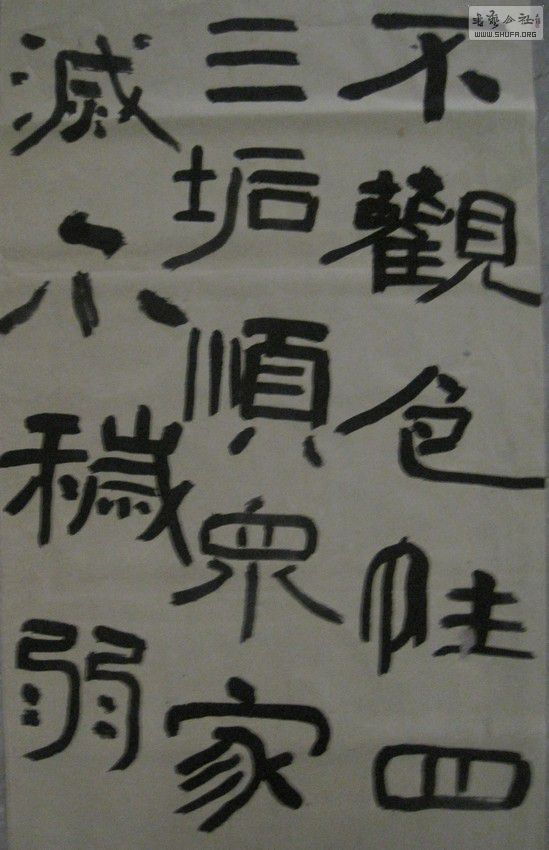 不觀色性四
三垢順眾家
滅六穢弱
书艺公社
WWW.SHUFA.ORG